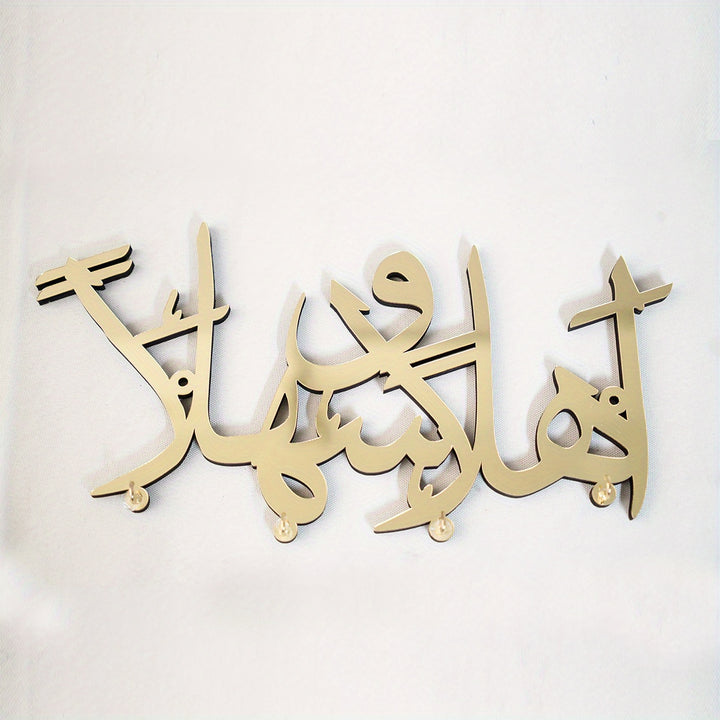 أهلا وسهلاً